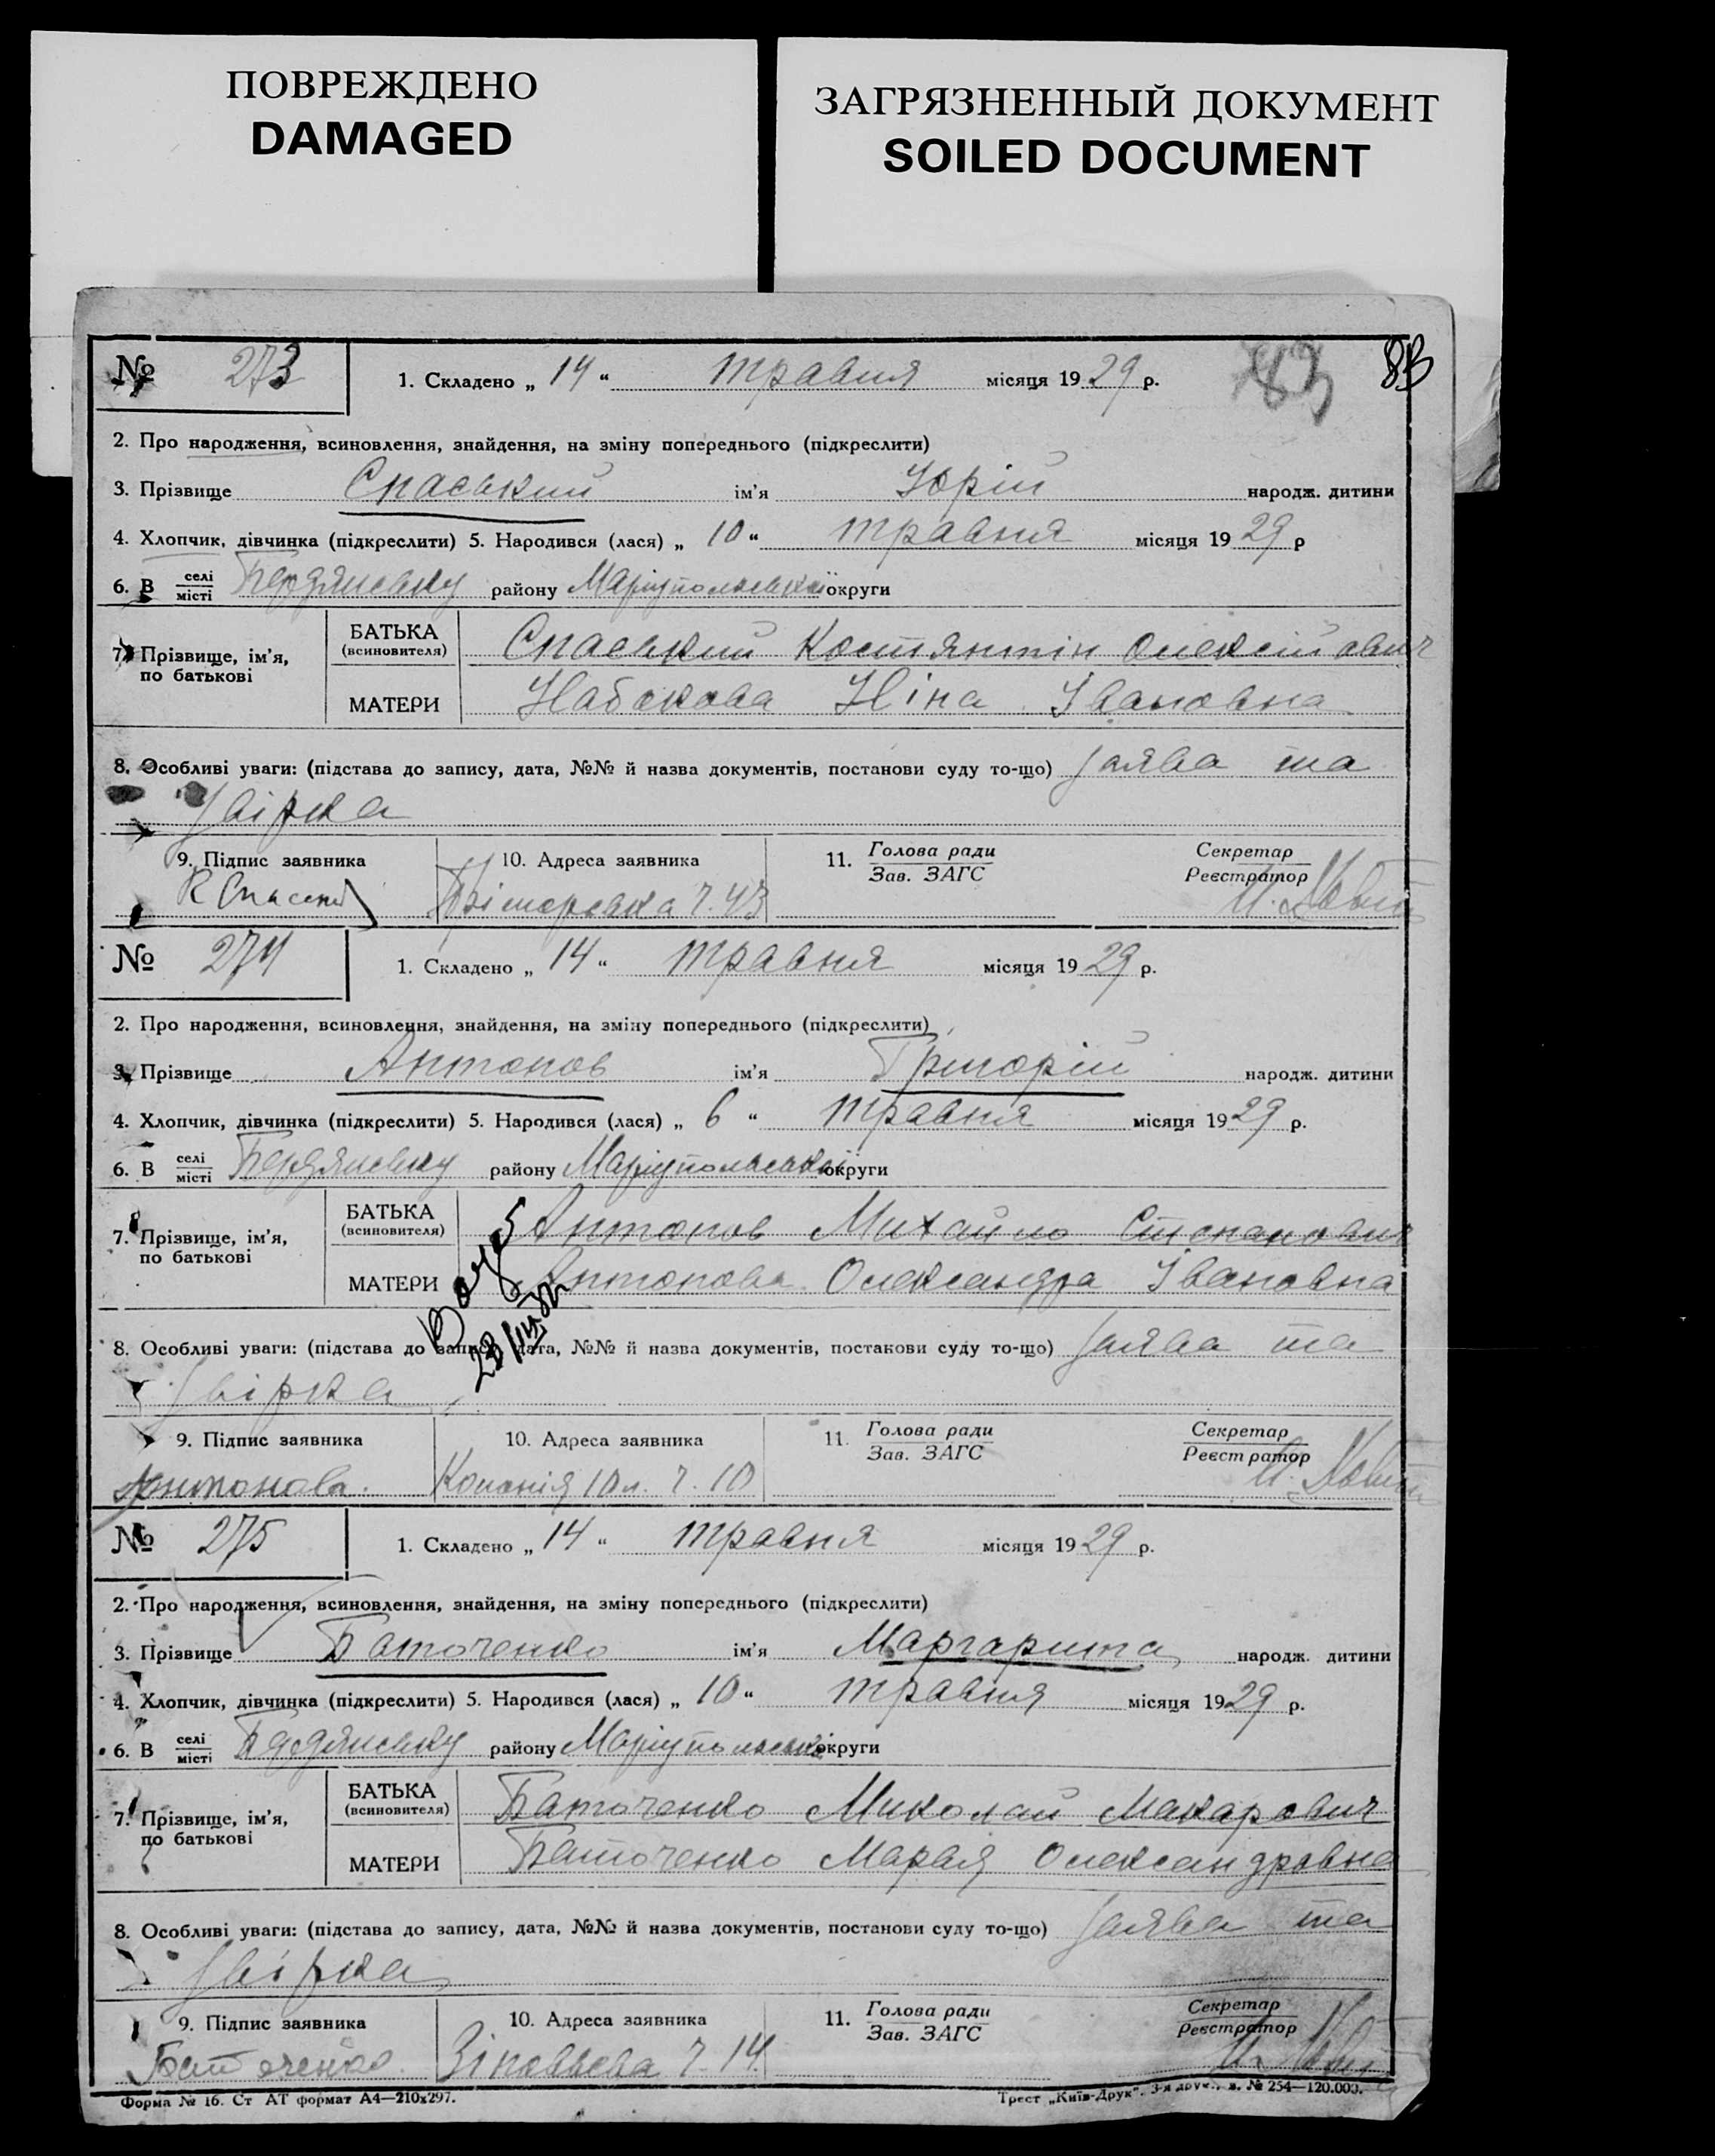 ПОВРЕЖДЕНО
DAMAGED
ЗАГРЯЗНЕННЫЙ ДОКУМЕНТ
SOILED DOCUMENT
№ 273 1. Складено „ 14 “ травня місяця 19 29 р. 83 83
2. Про народження, всиновлення, знайдення, на зміну попереднього (підкреслити)
3. Прізвище Спаський ім’я Юрій народж. дитини
4. Хлопчик, дівчинка (підкреслити) 5. Народився (лася) „ 10 “ травня місяця 19 29 р
6. В селі місті Бердянську району Маріупольської округи
7. Прізвище, ім’я, по батькові
БАТЬКА (всиновителя) Спаський Костянтін Олексійович
МАТЕРИ Набокова Ніна Івановна
8. Особливі уваги: (підстава до запису, дата, №№ й назва документів, постанови суду то-що) заява та
звірка
9. Підпис заявника 10. Адреса заявника 11. Голова ради Зав. ЗАГС Секретар Реєстратор
Приморська ч. 43
№ 274 1. Складено „ 14 “ травня місяця 19 29 р.
2. Про народження, всиновлення, знайдення, на зміну попереднього (підкреслити)
3. Прізвище Антонов ім’я Григорій народж. дитини
4. Хлопчик, дівчинка (підкреслити) 5. Народився (лася) „ 6 “ травня місяця 19 29 р.
6. В селі місті Бердянську району Маріупольської округи
7. Прізвище, ім’я, по батькові
БАТЬКА (всиновителя) Антонов Михайло Степанович
МАТЕРИ Антонова Олександра Івановна
8. Особливі уваги: (підстава до запису, дата, №№ й назва документів, постакови суду то-що) заява та
звірка
9. Підпис заявника 10. Адреса заявника 11. Голова ради Зав. ЗАГС Секретар Реєстратор
Антонова. 10 л. ч. 10
№ 275 1. Складено „ 14 “ травня місяця 19 29 р.
2. Про народження, всиновлення, знайдення, на зміну попереднього (підкреслити)
3. Прізвище Баточенко ім’я Маргарита народж. дитини
4. Хлопчик, дівчинка (підкреслити) 5. Народився (лася) „ 10 “ травня місяця 19 29 р.
6. В селі місті Бердянську району Маріупольської округи
7. Прізвище, ім’я, по батькові
БАТЬКА (всиновителя) Баточенко Миколай Макарович
МАТЕРИ Баточенко Марія Олександровна
8. Особливі уваги: (підстава до запису, дата, №№ й назва документів, постанови суду то-що) заява та
звірка
9. Підпис заявника 10. Адреса заявника 11. Голова ради Зав. ЗАГС Секретар Реєстратор
Баточенко Зіновьева ч. 14
Форма № 16. Ст АТ формат А4—210х297. Трест „Київ-Друк“. 3-я друк., з. № 254—120.000.